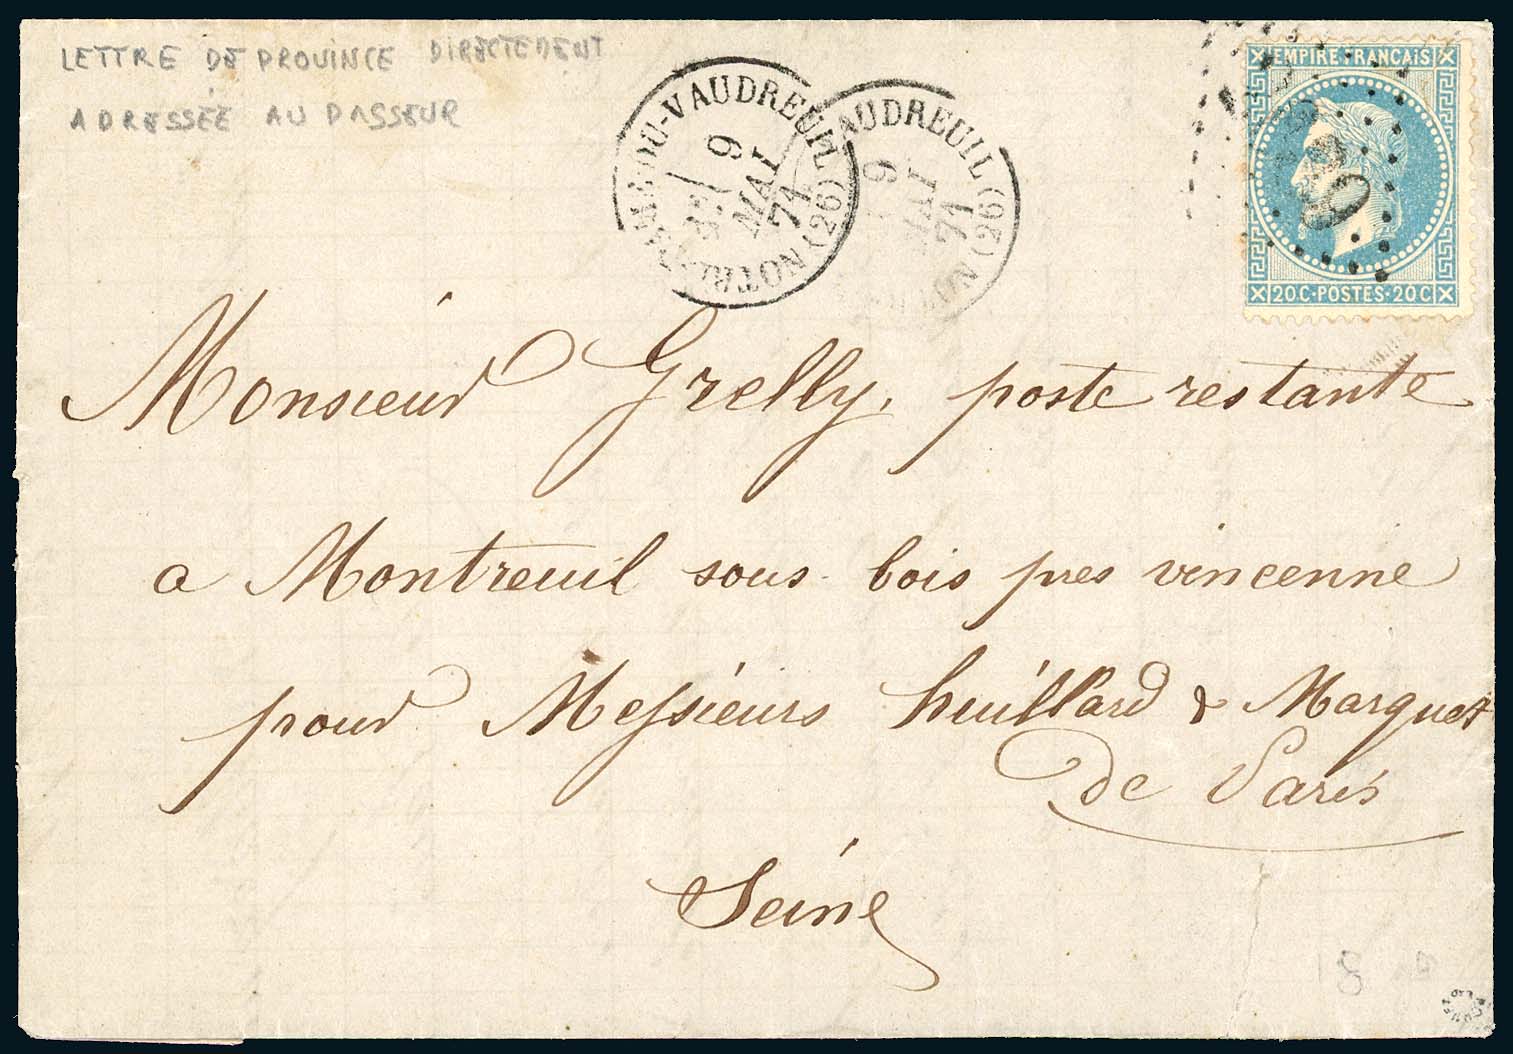 LETTRE DE PROVINCE DIRECTEMENT
ADRESSÉE AU PASSEUR
VAUDREUIL (26)
9
MAI
71
NOTRE
AUDREUIL (26)
9
MAI
71
EMPIRE FRANCAIS
20C·POSTES·20C
Monsieur Grelly, poste restante
a Montreuil sous bois pres vincenne
pour Messieurs huillard & Marquet
de Paris
Seine